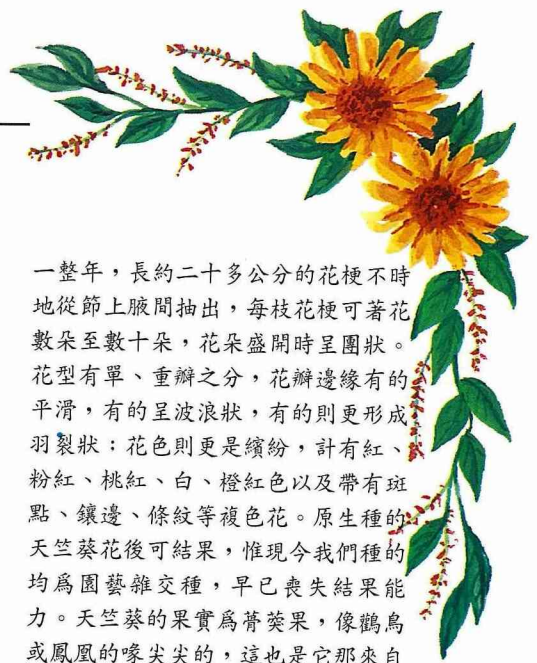 一整年，長約二十多公分的花梗不時
地從節上腋間抽出，每枝花梗可著花
數朵至數十朵，花朵盛開時呈團狀。
花型有單、重瓣之分，花瓣邊緣有的
平滑，有的呈波浪狀，有的則更形成
羽裂狀：花色則更是繽紛，計有紅、
粉紅、桃紅、白、橙紅色以及帶有斑
點、鑲邊、條紋等複色花。原生種的
天竺葵花後可結果，惟現今我們種的
均爲園藝雜交種，早已喪失結果能
力。天竺葵的果實爲蓇葖果，像鸛鳥
或鳳凰的喙尖尖的，這也是它那來自